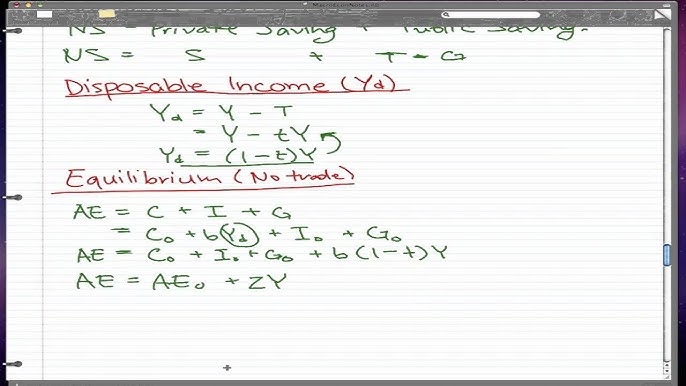 NS = Private Saving + Public Saving.
NS = S + T - G
Disposable Income (Yd)
Yd = Y - T
= Y - tY
Yd = (1-t)Y
Equilibrium (No trade)
AE = C + I + G
= C₀ + b(Yd) + I₀ + G₀
AE = C₀ + I₀ + G₀ + b(1-t)Y
AE = AE₀ + ZY